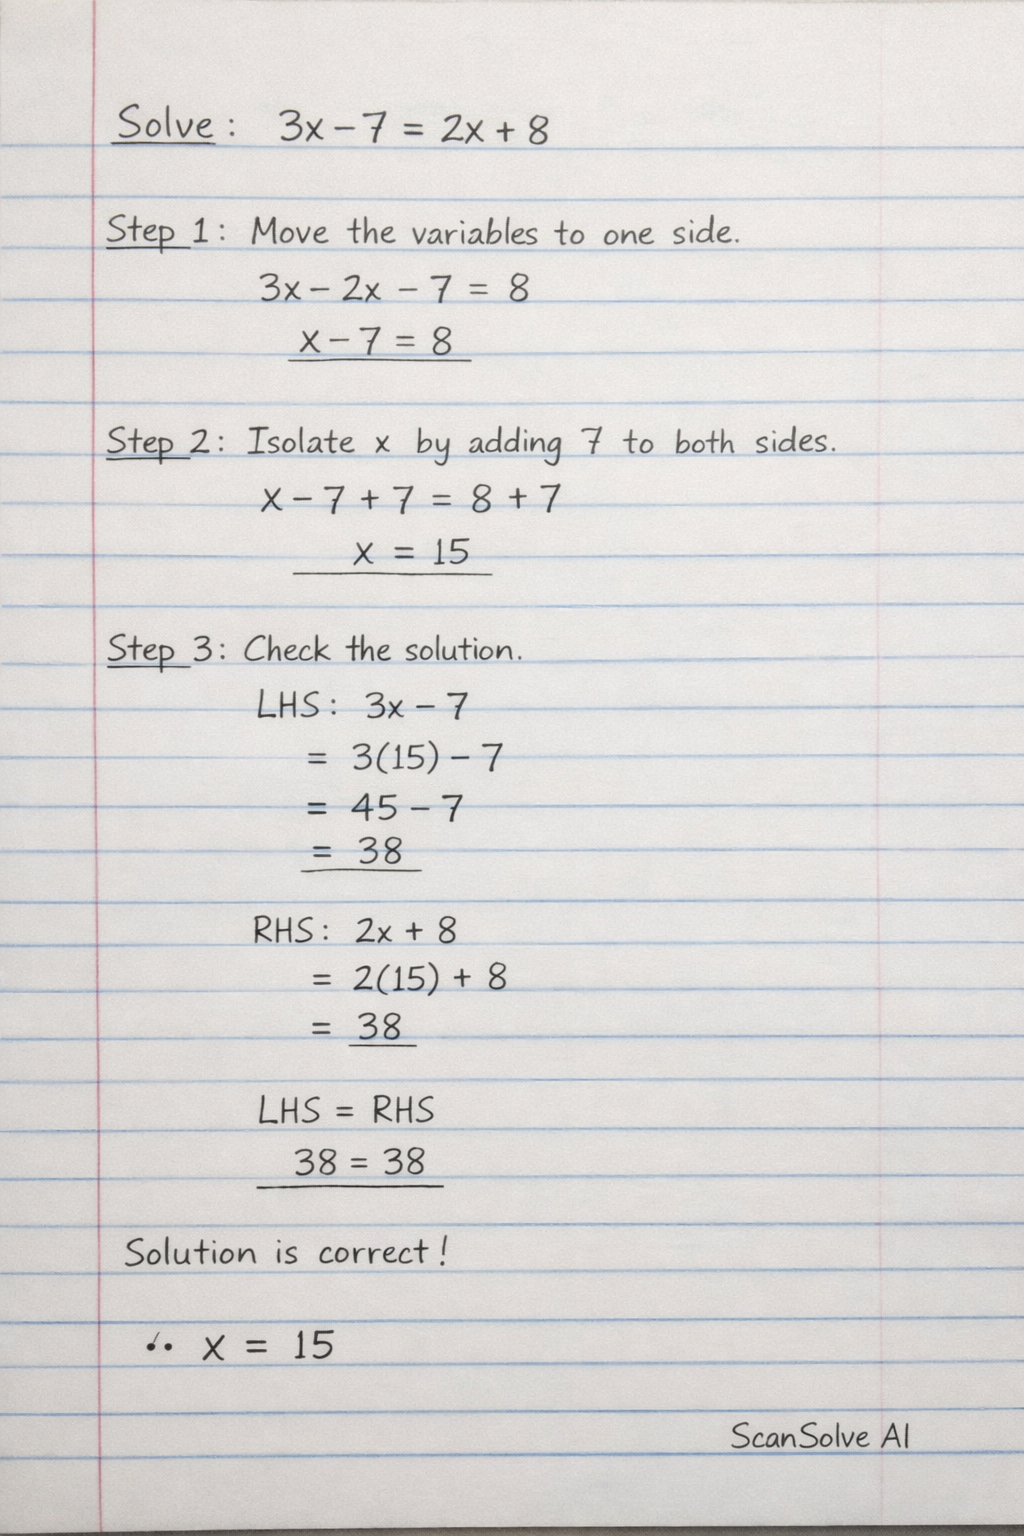 Solve: 3x - 7 = 2x + 8
Step 1: Move the variables to one side.
3x - 2x - 7 = 8
x - 7 = 8
Step 2: Isolate x by adding 7 to both sides.
x - 7 + 7 = 8 + 7
x = 15
Step 3: Check the solution.
LHS: 3x - 7
= 3(15) - 7
= 45 - 7
= 38
RHS: 2x + 8
= 2(15) + 8
= 38
LHS = RHS
38 = 38
Solution is correct!
∴ x = 15
ScanSolve AI